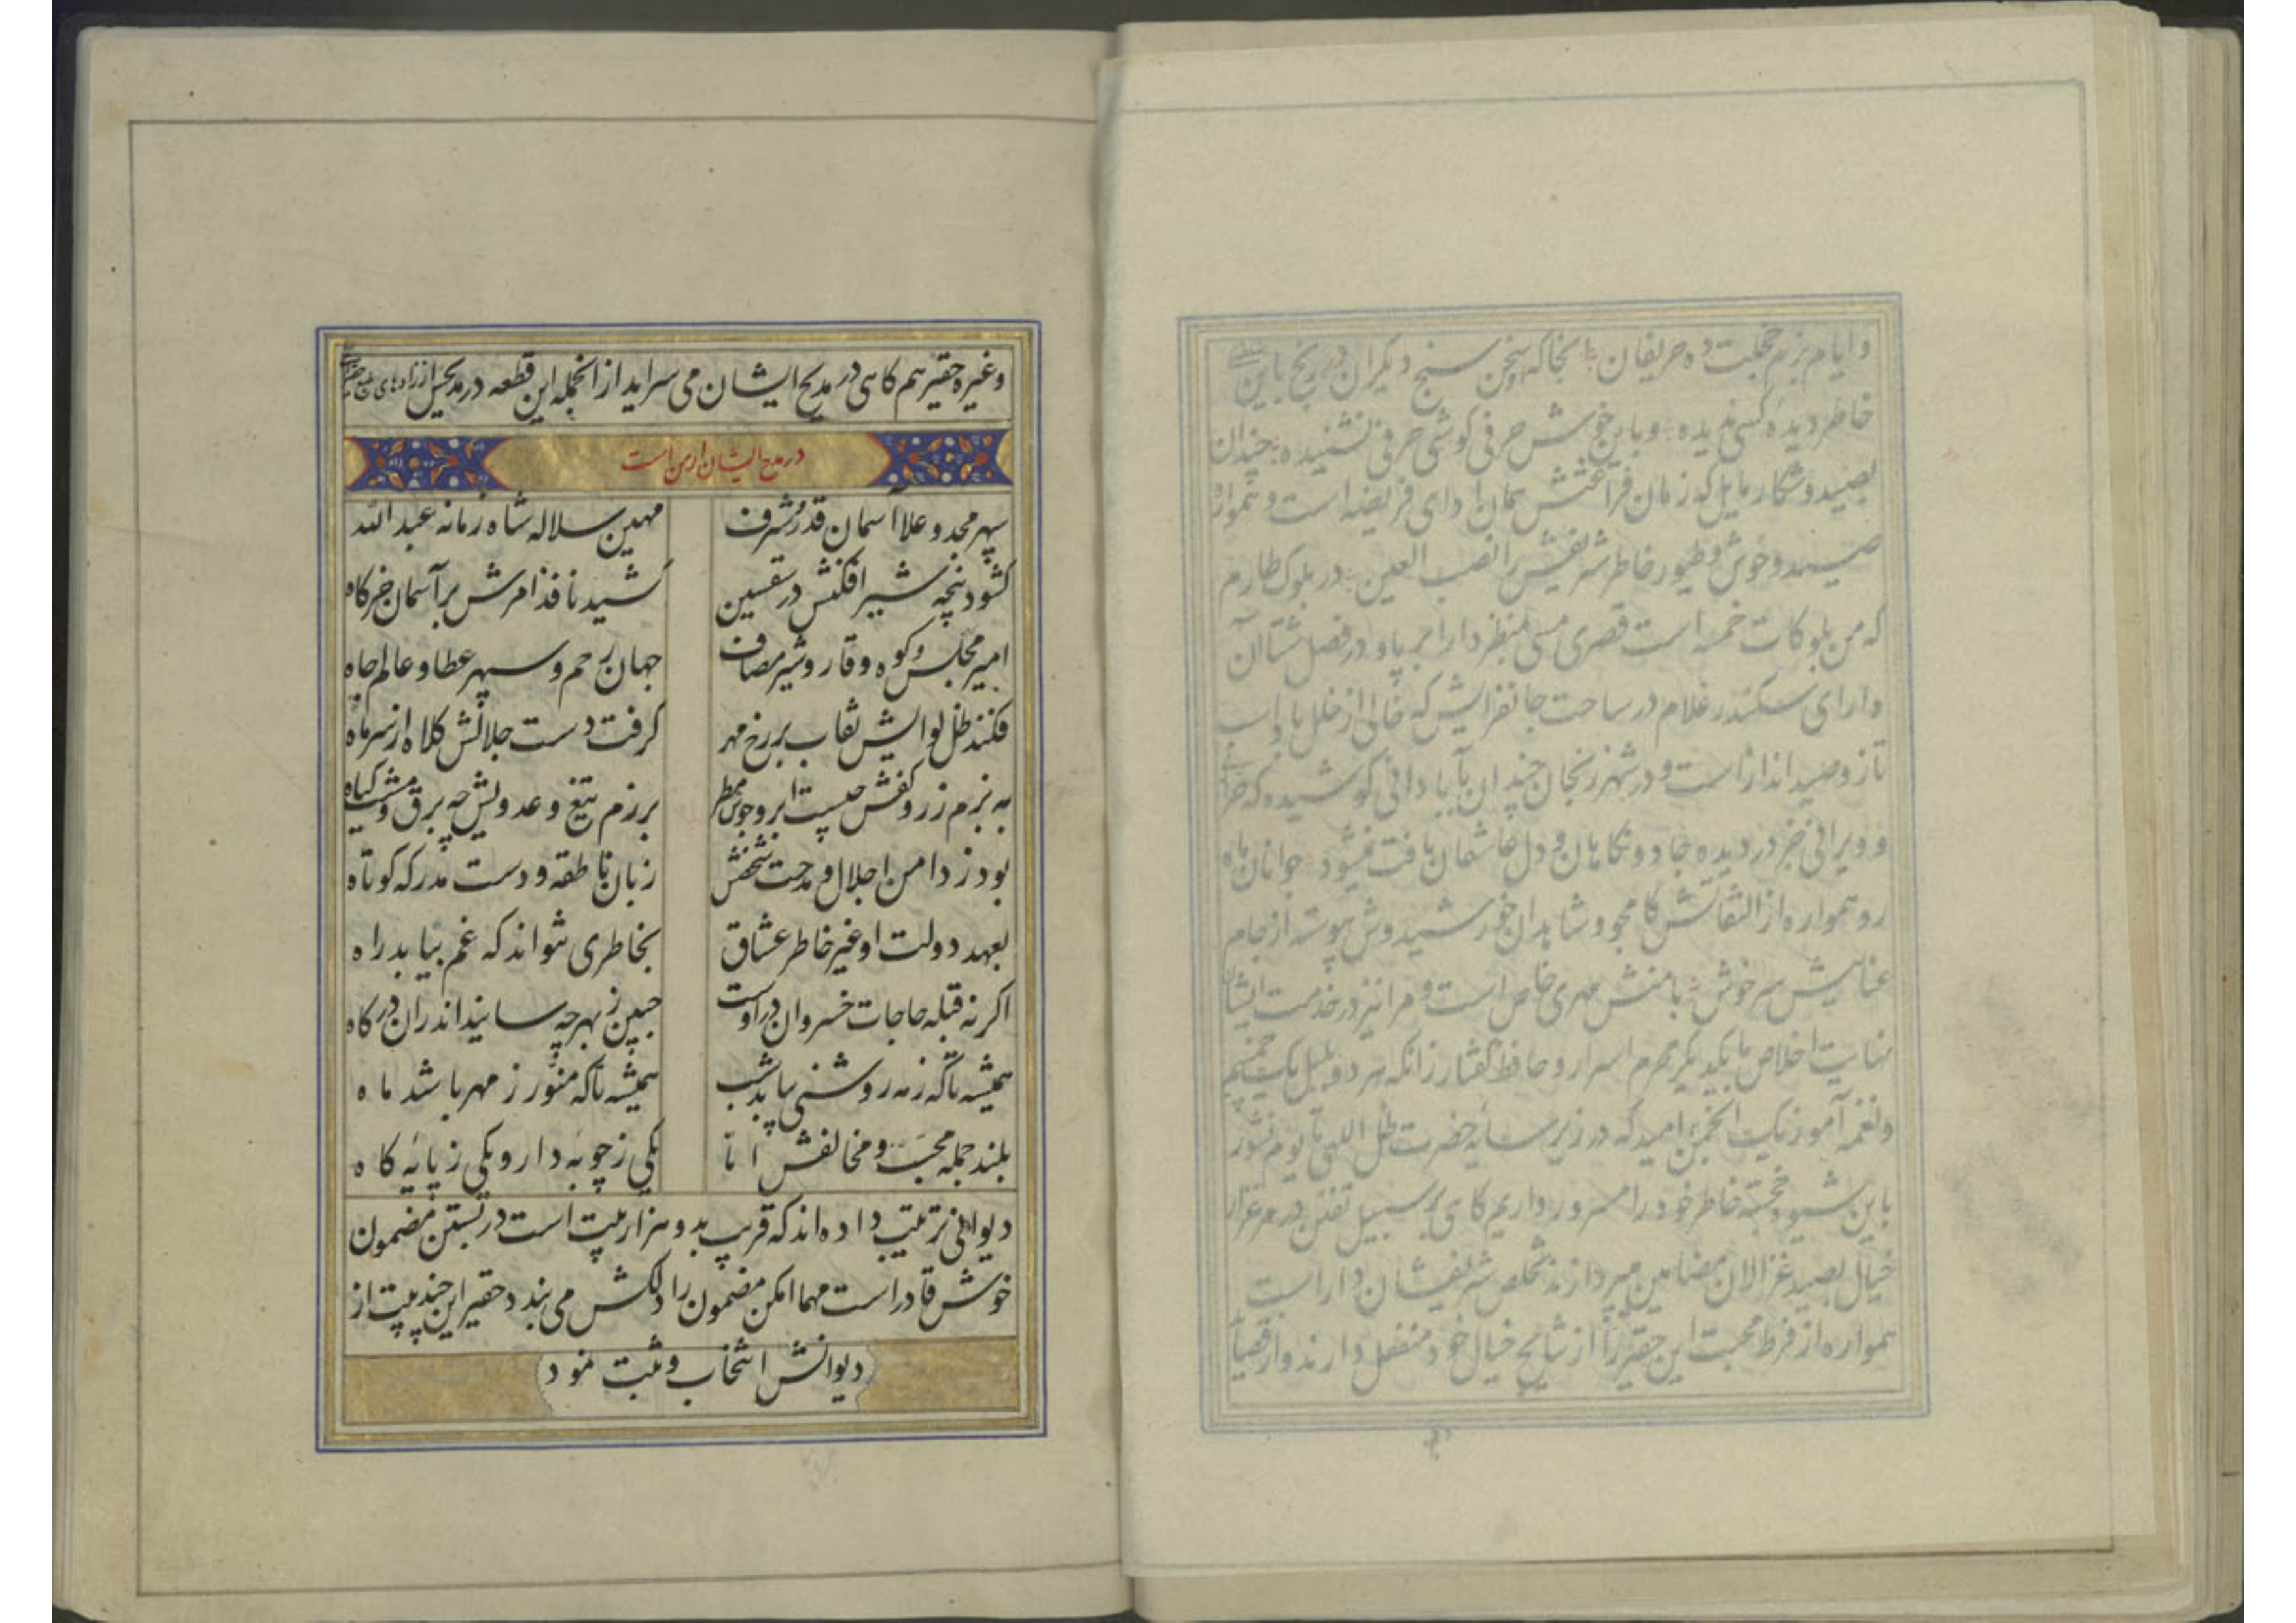 و ایام بزم حجلت ده حریفان آنجا که سخن سنج دیگران در پنج باین
خاطر دیده کسی ندیده و باین خوش حرفی گوشی حرفی نشنیده چندان
بصید و شکار مایل که زمان فراغتش همان ادای فریضه است و هموار
صید وحوش و طیور خاطر شریفش را نصب العین در بلوک طارم
که من بلوکات خمسه است قصری مسمی بمنظر دارا بر پا و در فصل شتا آن
دارای سکندر غلام در ساحت جانفزایش که خالی از خلل
تاز و صید انداز است و در شهر زنجان چندان بآبادانی کوشیده که
و ویرانی جز در دیده جادو نگاهان و دل عاشقان یافت نمیشود جوانان ماه
رو همواره از التفاتش کامجو و شاهدان خورشیدوش پیوسته از جام
عنایتش سرخوش بامنش مهری خاص است و مرا نیز در خدمت ایشان
نهایت اخلاص با یکدیگر محرم اسرار و حافظ گفتار زانکه هر دو بلبل یک چمنیم
و نغمه آموز یک انجمن امید که در زیر سایه حضرت ظل اللهی تا یوم نشور
باین شیوه خجسته خاطر خود را مسرور داریم گاهی بر سبیل تفنن در مرغزار
خیال بصید غزالان مضامین میپردازند تخلص شریفشان دارا است
همواره از فرط محبت این حقیر را از نتایج خیال خود منفعل دارند و از قصیا
و غیره حقیر هم کاهی در مدیح ایشان می سراید از انجمله این قطعه در مدیحش از زادهای طبع حقیر
در مدح ایشان است
سپهر مجد و علا آسمان قدر و شرف مهین سلاله شاه زمانه عبدالله
کشود پنچه شیر افکنش در سقسین کشید نافذ امرش بر آسمان خرکاه
امیر مجلس و کوه وقار و شیر مصاف جهان رحم و سپهر عطا و عالم جاه
فکند ظل لوایش نقاب بر رخ مهر کرفت دست جلالش کلاه از سر ماه
به بزم زر و کفش چیست ابر و جوش مطر برزم تیغ و عدویش چه برق و مشت کیاه
بود ز دامن اجلال و مدحت شخصش زبان ناطقه و دست مدرکه کوتاه
بعهد دولت او غیر خاطر عشاق بخاطری نتواند که غم بیابد راه
اکر نه قبله حاجات خسروان در اوست جبین ز بهر چه سایند اندران درکاه
همیشه تا که ز مه روشنی بیابد شب همیشه تا که منور ز مهر باشد ماه
بلند جمله محب و مخالفش اما یکی ز چوبه دار و یکی ز پایه کاه
دیوانی ترتیب داده اند که قریب بدو هزار بیت است در بستن مضمون
خوش قادر است مهما امکن مضمون را دلکش می بندد حقیر این چند بیت از
دیوانش انتخاب و ثبت نمود